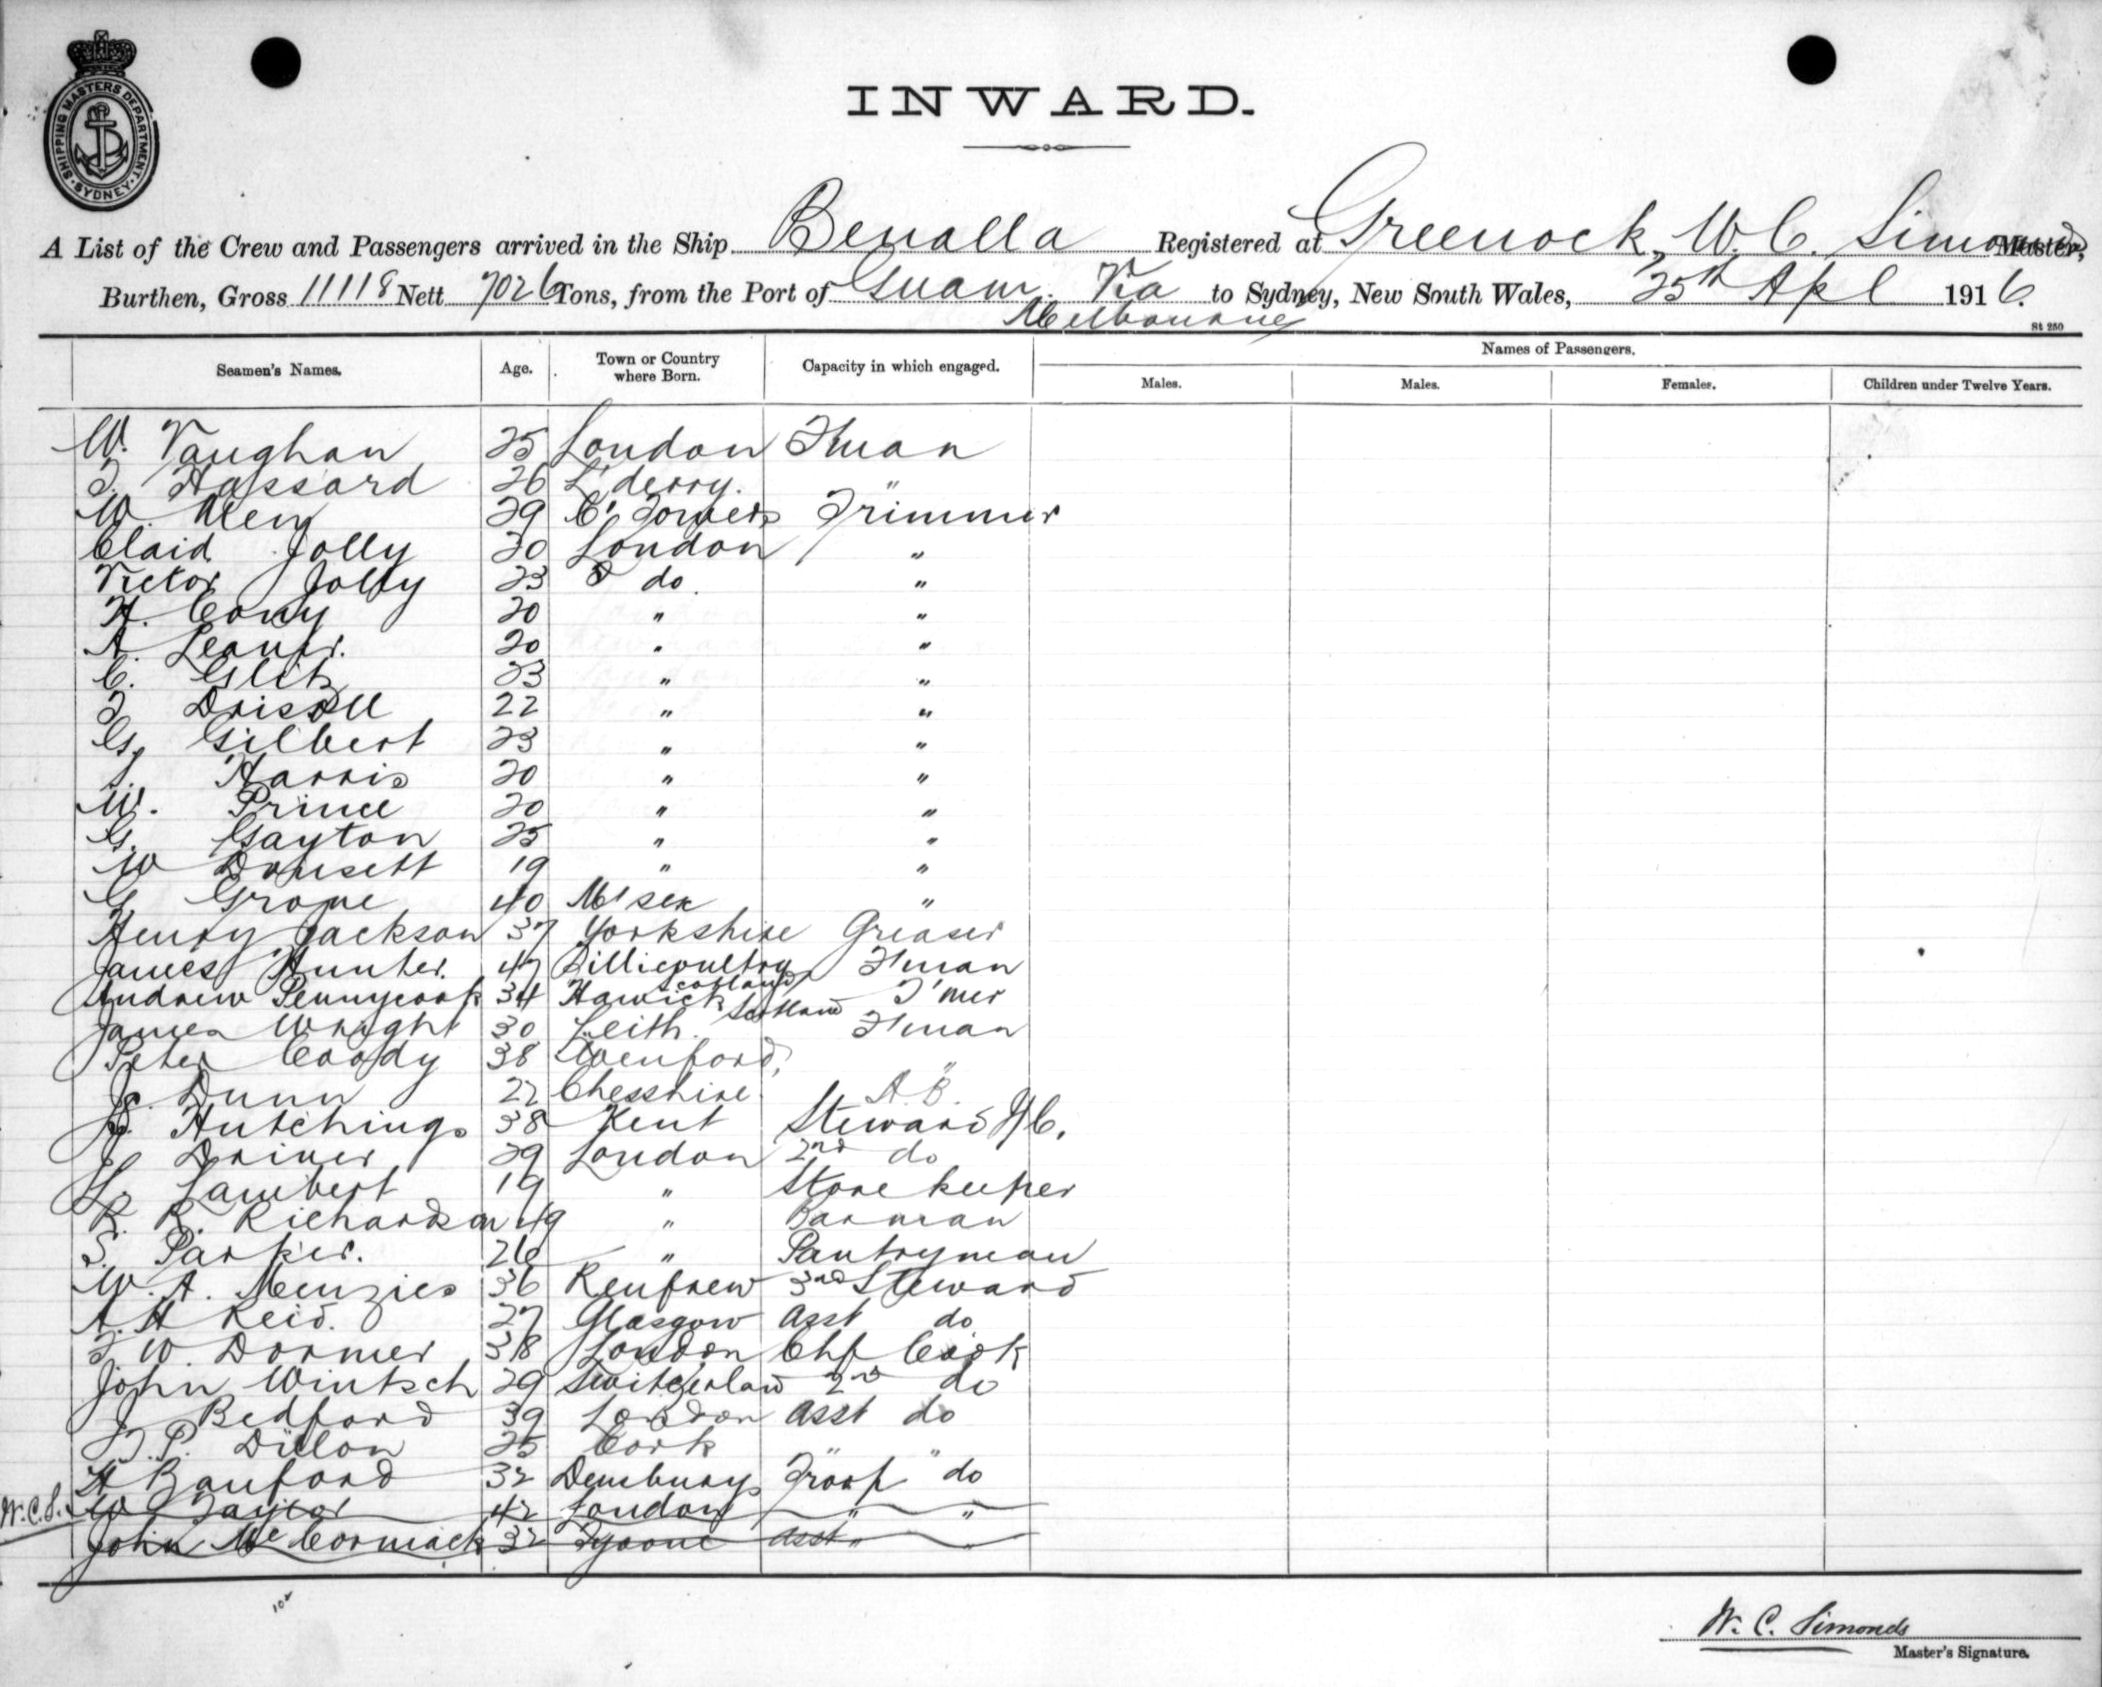 SHIPPING MASTERS DEPARTMENT. SYDNEY.
INWARD.
A List of the Crew and Passengers arrived in the Ship Benalla Registered at Greenock, W. C. Simonds Master,
Burthen, Gross 11118 Nett 7026 Tons, from the Port of Guam Via Melbourne to Sydney, New South Wales, 25th Apl 1916.
St 250
Seamen's Names. Age. Town or Country where Born. Capacity in which engaged. Names of Passengers.
Males. Males. Females. Children under Twelve Years.
W. Vaughan 25 London F'man
Hassard 26 L'derry. "
W. 29 C' Towers Trimmer
Claid Jolly 20 London "
Victor Jolly 23 do. "
H. Cony 20 " "
A. 20 " "
C. 23 " "
Driscoll 22 " "
G. Gilbert 23 " "
Harris 20 " "
W. Prince 20 " "
G. Gayton 25 " "
W Dowsett 19 " "
G. 40 M'sex "
Henry Jackson 37 Yorkshire Greaser
James Hunter. 47 Tillicoultry Scotland F'man
Andrew Pennycook 34 Hawick Scotland T'mer
James Wright 30 Leith. F'man
Peter Coody 38 "
J. Dunn 22 Chesshire A.B.
Hutchings 38 Kent Steward I/C.
J. Driver 29 London 2nd do
L. Lambert 19 " Store keeper
R. R. Richardson 49 " Barman
S. Parker. 26 " Pantryman
W. A. Menzies 36 Renfrew 3rd Steward
A. H Reid. 27 Glasgow Asst do
W. Dormer 38 London Chf Cook
John Wintsch 29 Switzerland 2nd do
J. Bedford 39 London Asst do
P. Dillon 25 Cork " "
H Banford 32 Troop do
W.C.S. W Taylor 42 London " "
John McCormack 32 Tyrone asst " "
W. C. Simonds
Master's Signature.